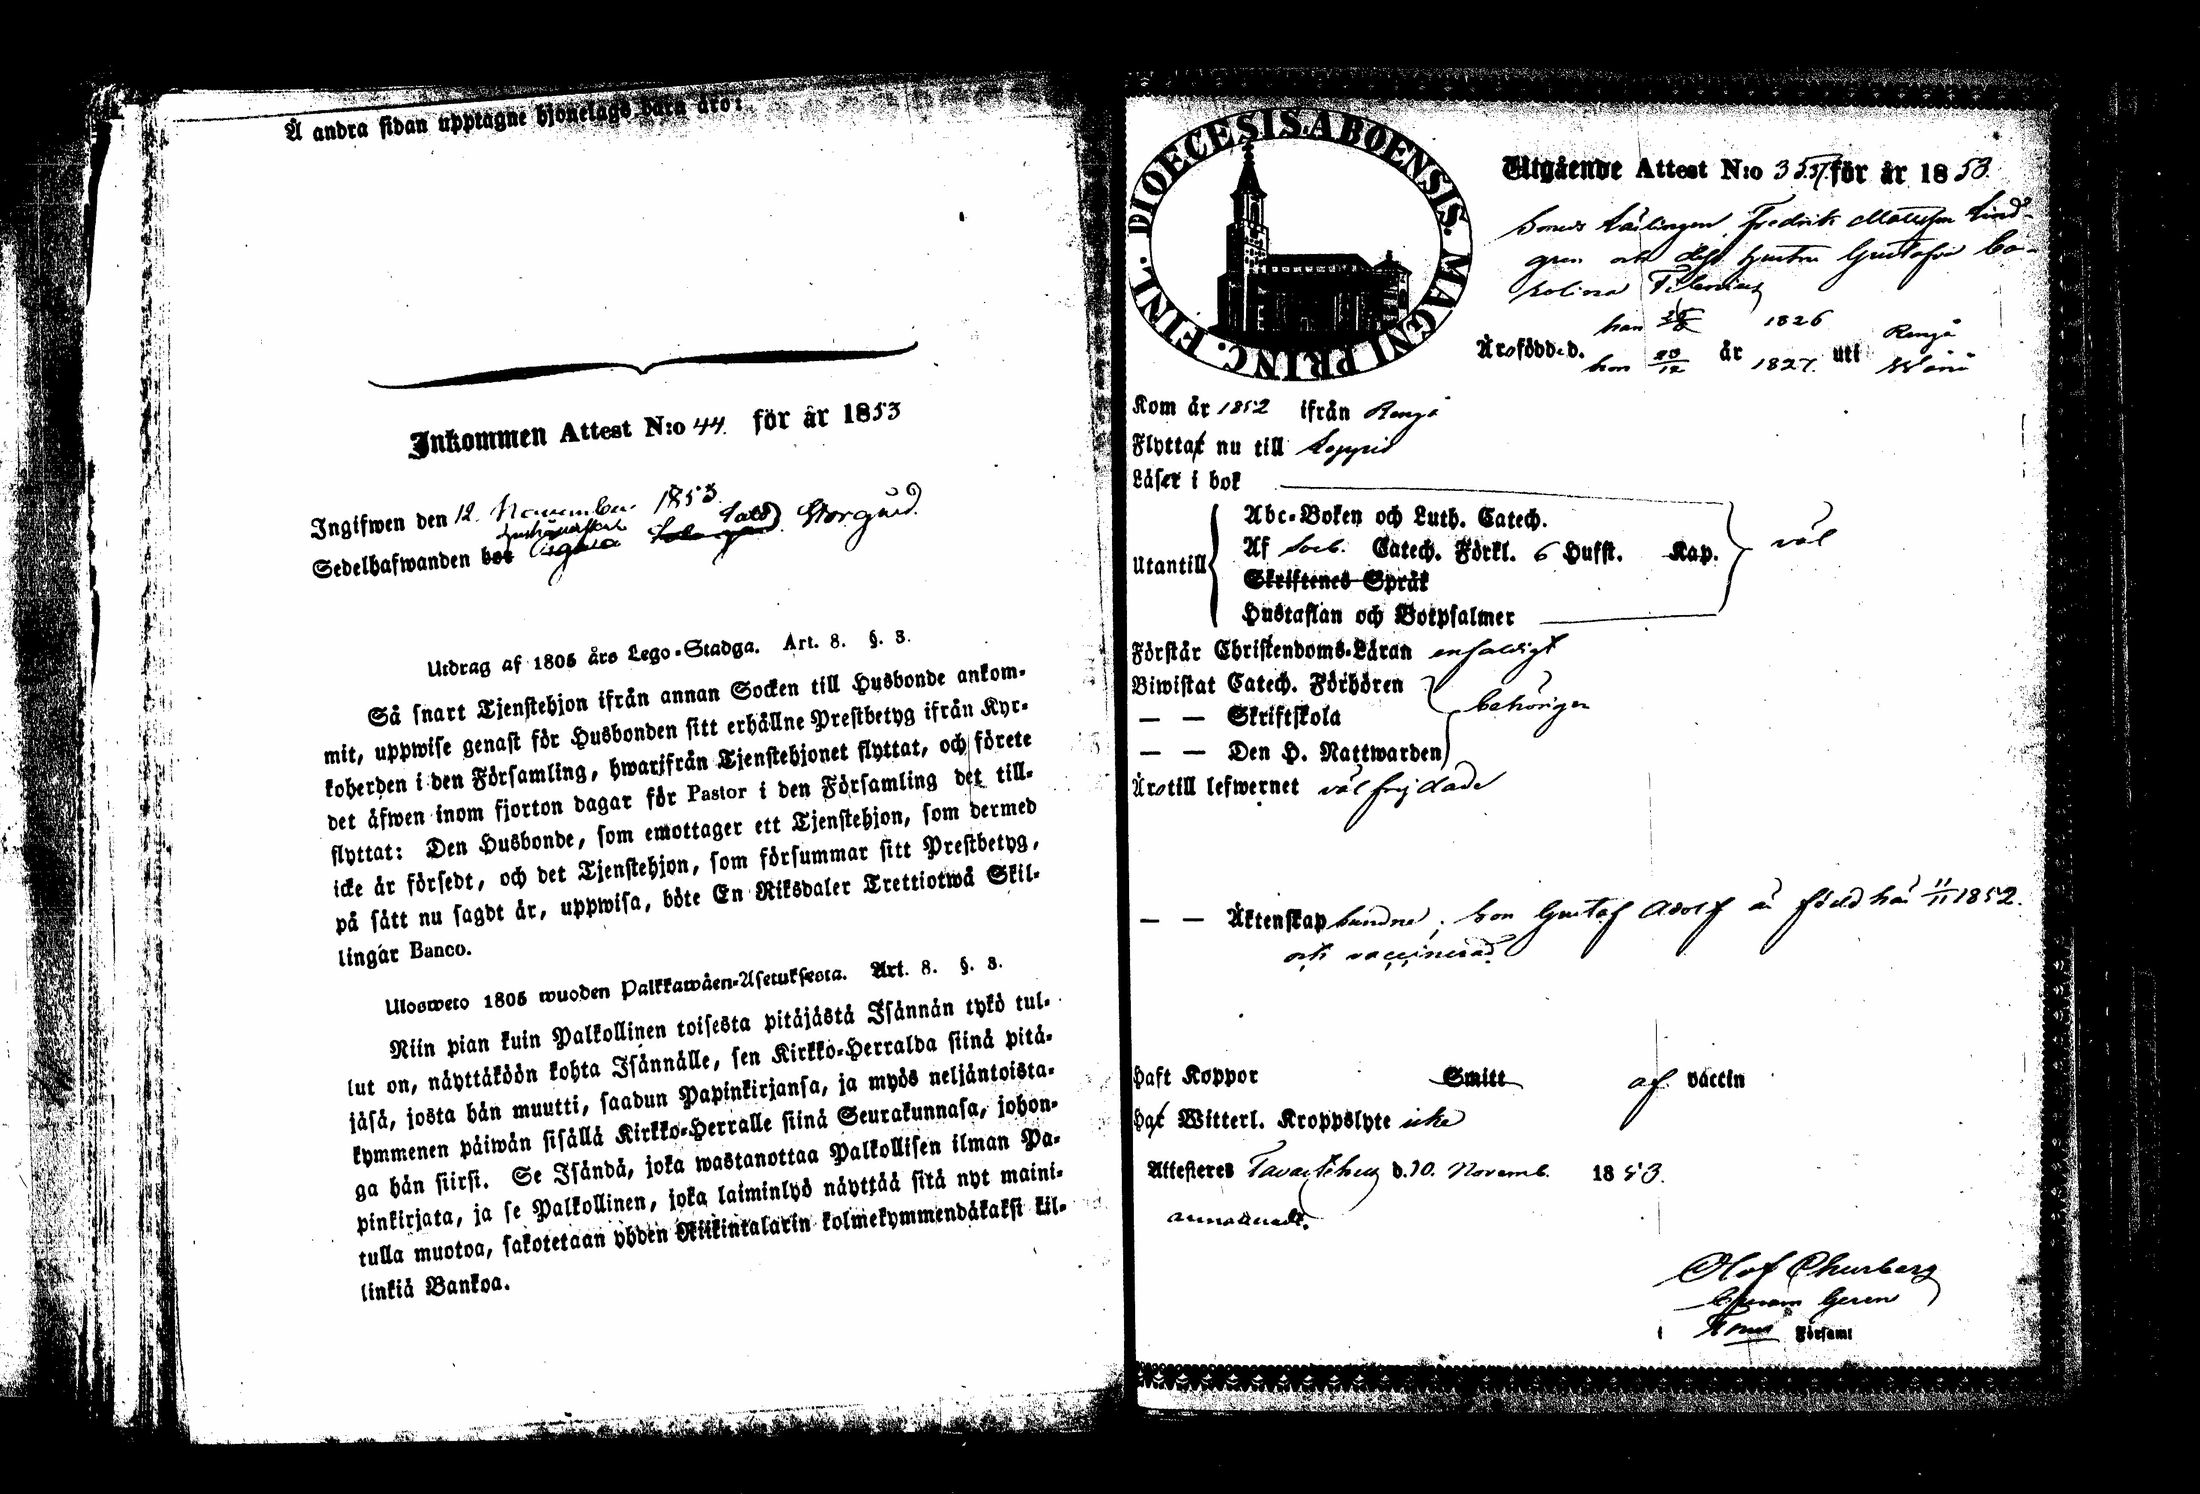 Å andra sidan upptagne hjonelags barn äro:
Inkommen Attest N:o 44. för år 1853
Ingifwen den 12. November 1853
Sedelhafwanden bor
Utdrag af 1805 års Lego-Stadga. Art. 8. §. 3.
Så snart Tjenstehjon ifrån annan Socken till Husbonde ankom-
mit, uppwise genast för Husbonden sitt erhållne Prestbetyg ifrån Kyr-
koherden i den Församling, hwarifrån Tjenstehjonet flyttat, och förete
det äfwen inom fjorton dagar för Pastor i den Församling det till-
flyttat: Den Husbonde, som emottager ett Tjenstehjon, som dermed
icke är försedt, och det Tjenstehjon, som försummar sitt Prestbetyg,
på sätt nu sagdt är, uppwisa, böte En Riksdaler Trettiotwå Skil-
lingar Banco.
Ulosweto 1805 wuoden Palkkawäen-Asetuksesta. Art. 8. §. 3.
Niin pian kuin Palkollinen toisesta pitäjästä Isännän tykö tul-
lut on, näyttäköön kohta Isännälle, sen Kirkko-Herralda siinä pitä-
jäsä, josta hän muutti, saadun Papinkirjansa, ja myös neljäntoista-
kymmenen päiwän sisällä Kirkko-Herralle siinä Seurakunnasa, johon-
ga hän siirsi. Se Isändä, joka wastanottaa Palkollisen ilman Pa-
pinkirjata, ja se Palkollinen, joka laiminlyö näyttää sitä nyt maini-
tulla muotoa, sakotetaan yhden Riikintalarin kolmekymmendäkaksi kil-
linkiä Bankoa.
DIOECESIS ABOENSIS. MAGNI PRINC. FINL.
Utgående Attest N:o 357. för år 1853.
Fredrik Mattsson Lind-
gren och dess hustru Gustafva Ca-
rolina
Äro födde d. han 1826 Rengo
hon 20/12 år 1827. uti Wånå
Kom år 1852 ifrån Rengo
Flyttat nu till Loppis
Läser i bok
Utantill
Abc-Boken och Luth. Catech.
Af Sveb. Catech. Förkl. 6 Hufst. Kap. väl
Skriftenes Språk
Hustaflan och Botpsalmer
Förstår Christendoms-Läran enfaldigt
Biwistat Catech. Förhören
— — Skriftskola behörigen
— — Den H. Nattwarden
Äro till lefwernet väl frejdade
— — Äktenskap bundne; son Gustaf Adolf är född här 11/11 1852.
och vaccinerad.
Haft Koppor Smitt af vaccin
Har Witterl. Kroppslyte icke
Attesteras Tavastehus d. 10. Novemb. 1853.
Olof Churberg
i Församl